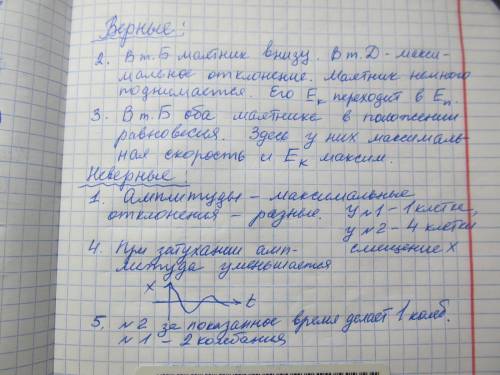 Верные:
2. В т. Б маятник внизу. В т. Д - макси-
мальное отклонение. Маятник немного
поднимается. Его Ек переходит в Еп.
3. В т. Б оба маятника в положении
равновесия. Здесь у них максималь-
ная скорость и Ек максим.
Неверные:
1. Амплитуды - максимальные
отклонения - разные. У №1 - 1 клетке,
у №2 - 4 клетки
4. При затухании амп- смещение х
литуда уменьшается
x
t
5. №2 за показанное время делает 1 колеб.
№1 - 2 колебания